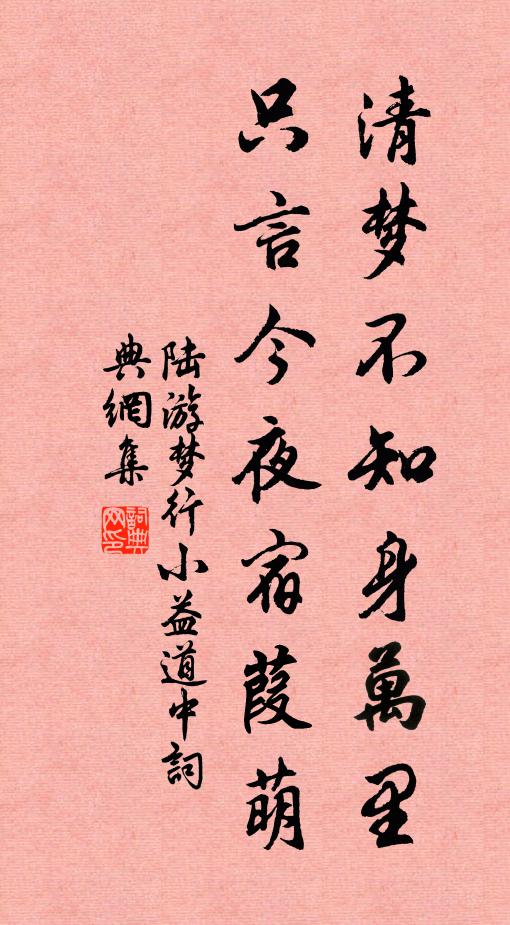 清梦不知身萬里
只言今夜宿葭萌
陆游梦行小益道中詞
典網集
詞典網印